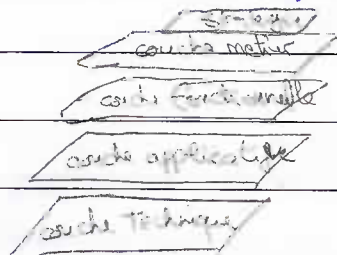 couche métier
couche fonctionnelle
couche applicative
couche Technique